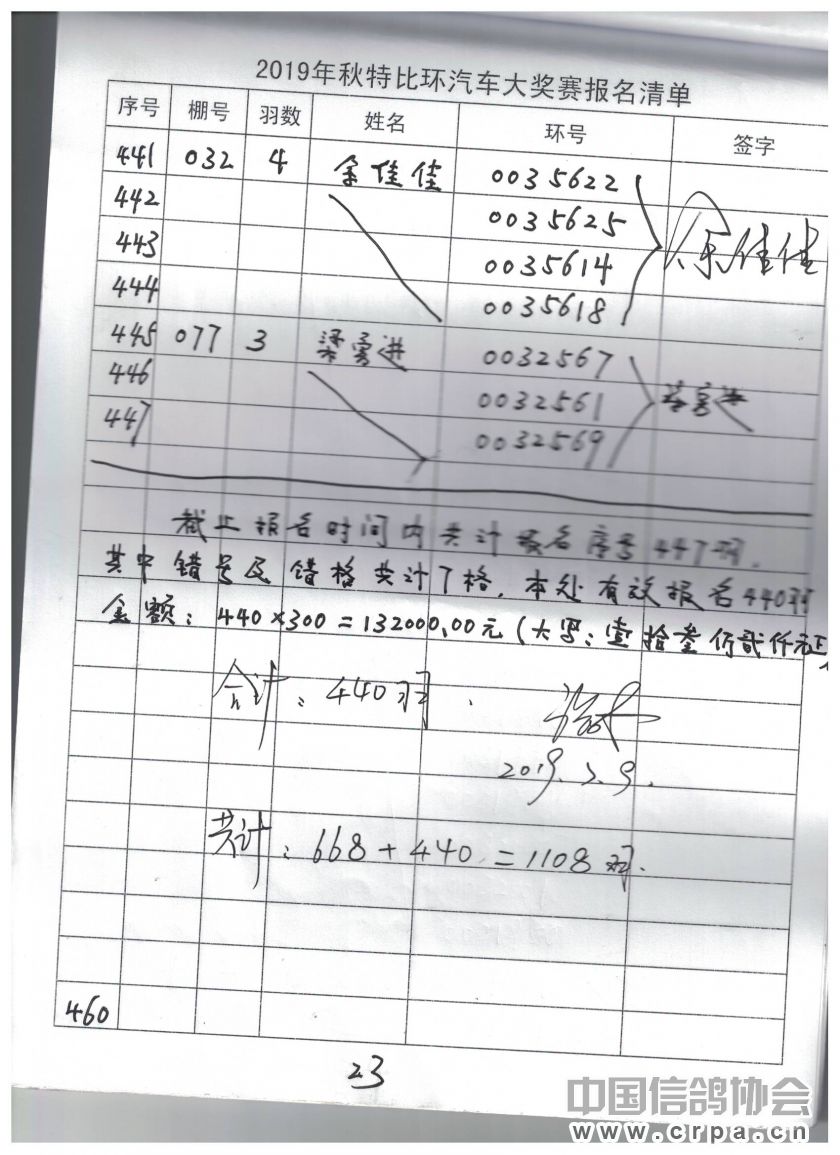 2019年秋特比环汽车大奖赛报名清单
序号 棚号 羽数 姓名 环号 签字
441 032 4 余佳佳 0035622 余佳佳
442 0035625
443 0035614
444 0035618
445 077 3 梁勇进 0032567
446 0032561
447 0032569
截止报名时间内共计报名序号447羽.
其中错号及错格共计7格,本处有效报名440羽
金额:440×300=132000.00元(大写:壹拾叁仟贰仟元正
合计:440羽.
2019.5.9.
共计:668+440=1108羽.
460
23
中国信鸽协会
www.crpa.cn